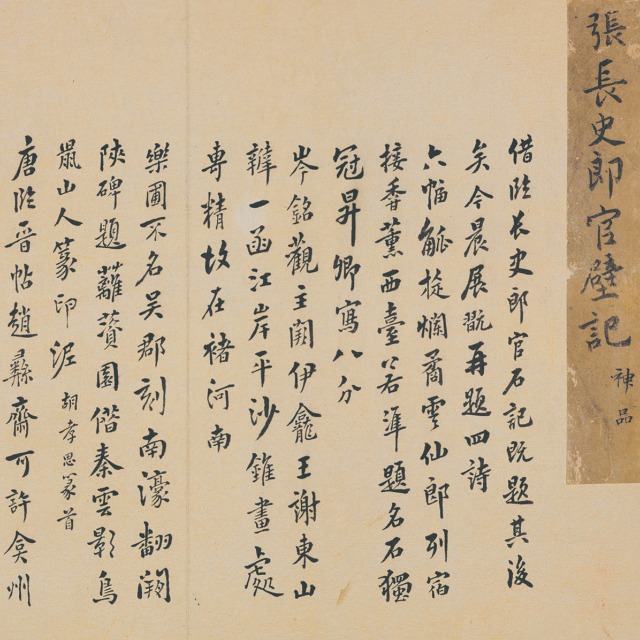 張長史郎官壁記
神品
借臨長史郎官石記既題其後
矣今晨展翫再題四詩
六幅觚棱爛矞雲仙郎列宿
接香薰西臺若準題名石獨
冠昇卿寫八分
岑銘觀主闕伊龕王謝東山
韡一函江岸平沙錐畫處
專精故在褚河南
樂圃不名吳郡刻南濠翻闕
陝碑題蘿薋園偕秦雲影鳥
鼠山人篆印泥 胡孝思篆首
唐臨晉帖趙彝齋可許弇州